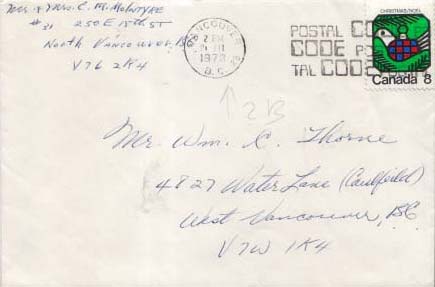 Mr. & Mrs. C. M. McIntyre
# 31 250 E 15th ST
North Vancouver, BC
V7L 2K4
VANCOUVER
2 PM
1973
B.C.
POSTAL CO
CODE P
TAL CODE
CHRISTMAS/NOËL
Canada 8
2B
Mr. Wm. C. Thorne
4827 Water Lane (Caulfield)
West Vancouver, BC
V7W 1K4